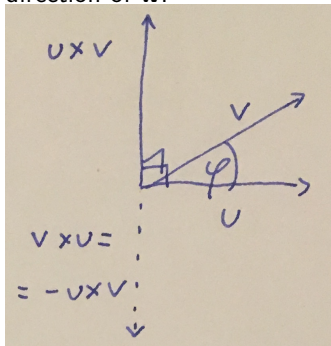 direction of w.
U × V
V
φ
U
V × U =
= - U × V